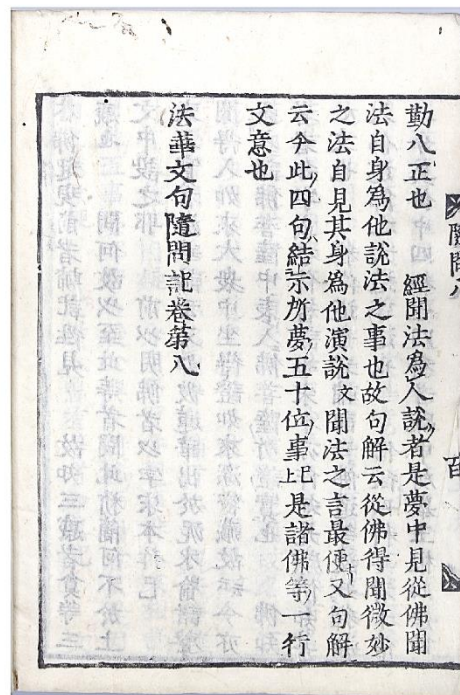 勤八正也　經聞法為人說者是夢中見從佛聞
法自身為他說法之事也故句解云從佛得聞微妙
之法自見其身為他演說文聞法之言最便ナリ又句解
云今此ノ四句ハ結示所夢ノ五十位ノ事已上是諸佛等ノ一行
文意也
法華文句隨問記卷第八
隨問八
百